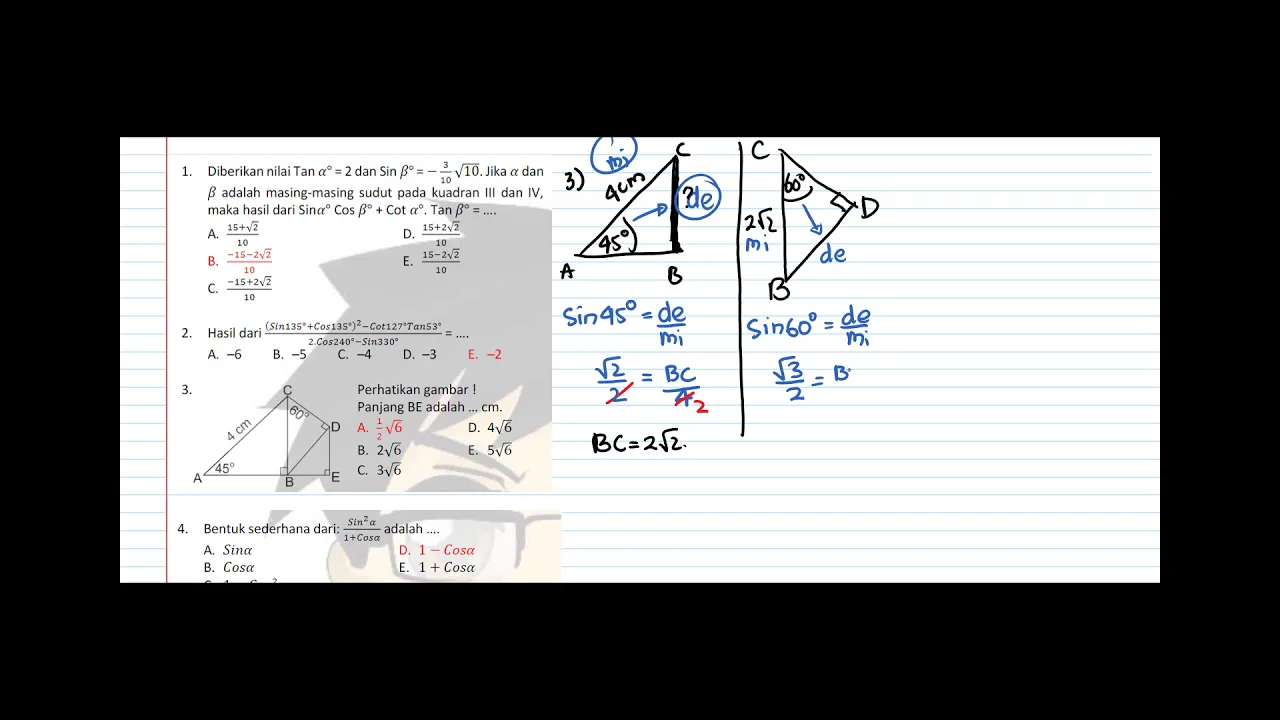 1. Diberikan nilai Tan α° = 2 dan Sin β° = −3/10 √10. Jika α dan
β adalah masing-masing sudut pada kuadran III dan IV,
maka hasil dari Sinα° Cos β° + Cot α°. Tan β° = ....
A. 15+√2/10 D. 15+2√2/10
B. −15−2√2/10 E. 15−2√2/10
C. −15+2√2/10
2. Hasil dari (Sin135°+Cos135°)²−Cot127°Tan53°/2.Cos240°−Sin330° = ....
A. −6 B. −5 C. −4 D. −3 E. −2
3. Perhatikan gambar !
Panjang BE adalah ... cm.
A. 1/2 √6 D. 4√6
B. 2√6 E. 5√6
C. 3√6
C
60°
D
4 cm
45°
A B E
4. Bentuk sederhana dari: Sin²α/1+Cosα adalah ....
A. Sinα D. 1 − Cosα
B. Cosα E. 1 + Cosα
mi
3) 4cm C
? de
45°
A B
Sin45° = de/mi
√2/2 = BC/4 2
BC = 2√2
C
60°
D
2√2
mi
de
B
Sin60° = de/mi
√3/2 = B